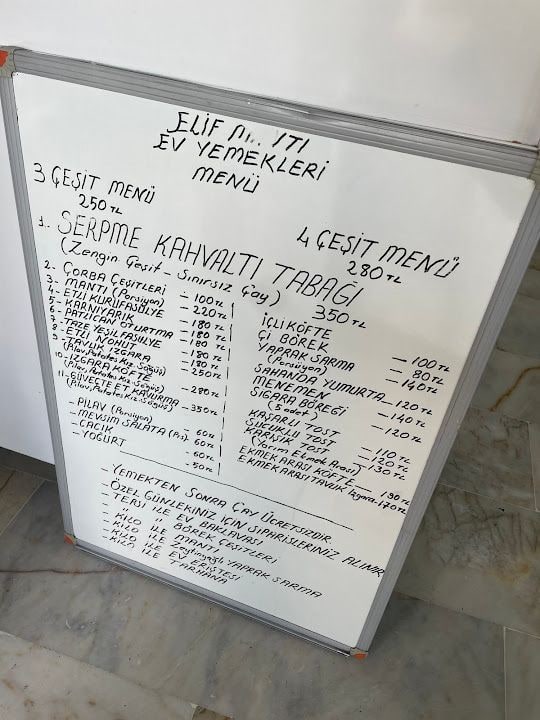 ELIF
EV YEMEKLERİ
MENÜ
3 ÇEŞİT MENÜ
250 TL
4 ÇEŞİT MENÜ
280 TL
1- SERPME KAHVALTI TABAĞI
(Zengin Çeşit - Sınırsız Çay)
350 TL
2- ÇORBA ÇEŞİTLERİ - 100 TL
3- MANTI (Porsiyon) - 220 TL
4- ETLİ KURUFASULYE - 180 TL
5- KARNIYARIK - 180 TL
6- PATLICAN OTURTMA - 180 TL
7- TAZE YEŞİL FASÜLYE - 180 TL
8- ETLİ NOHUT - 180 TL
9- TAVUK IZGARA - 250 TL
(Pilav, Patates Kız. Söğüş)
10- IZGARA KÖFTE - 280 TL
(Pilav, Patates Kız. Söğüş)
11- GÜVEÇTE ET KAVURMA - 350 TL
(Pilav, Patates Kız. Söğüş)
- PİLAV (Porsiyon) - 60 TL
- MEVSİM SALATA (Prs) 60 TL
- CACIK - 60 TL
- YOĞURT - 50 TL
İÇLİ KÖFTE - 100 TL
Çİ BÖREK - 80 TL
YAPRAK SARMA - 140 TL
(Porsiyon)
SAHANDA YUMURTA - 120 TL
MENEMEN - 140 TL
SİGARA BÖREĞİ - 120 TL
(5 adet)
KAŞARLI TOST - 110 TL
SUCUKLU TOST - 120 TL
KARIŞIK TOST - 130 TL
(Yarım Ekmek Arası)
EKMEK ARASI KÖFTE - 190 TL
EKMEK ARASI TAVUK Izgara - 170 TL
- YEMEKTEN SONRA ÇAY ÜCRETSİZDİR
- ÖZEL GÜNLERİNİZ İÇİN SİPARİŞLERİNİZ ALINIR
- TEPSİ İLE EV BAKLAVASI
- " " BÖREK ÇEŞİTLERİ
- KİLO İLE MANTI
- KİLO İLE Zeytinyağlı YAPRAK SARMA
- KİLO İLE EV ERİŞTESİ
- KİLO İLE TARHANA